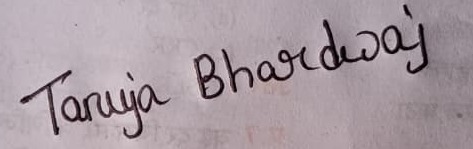 Tanuja Bhardwaj